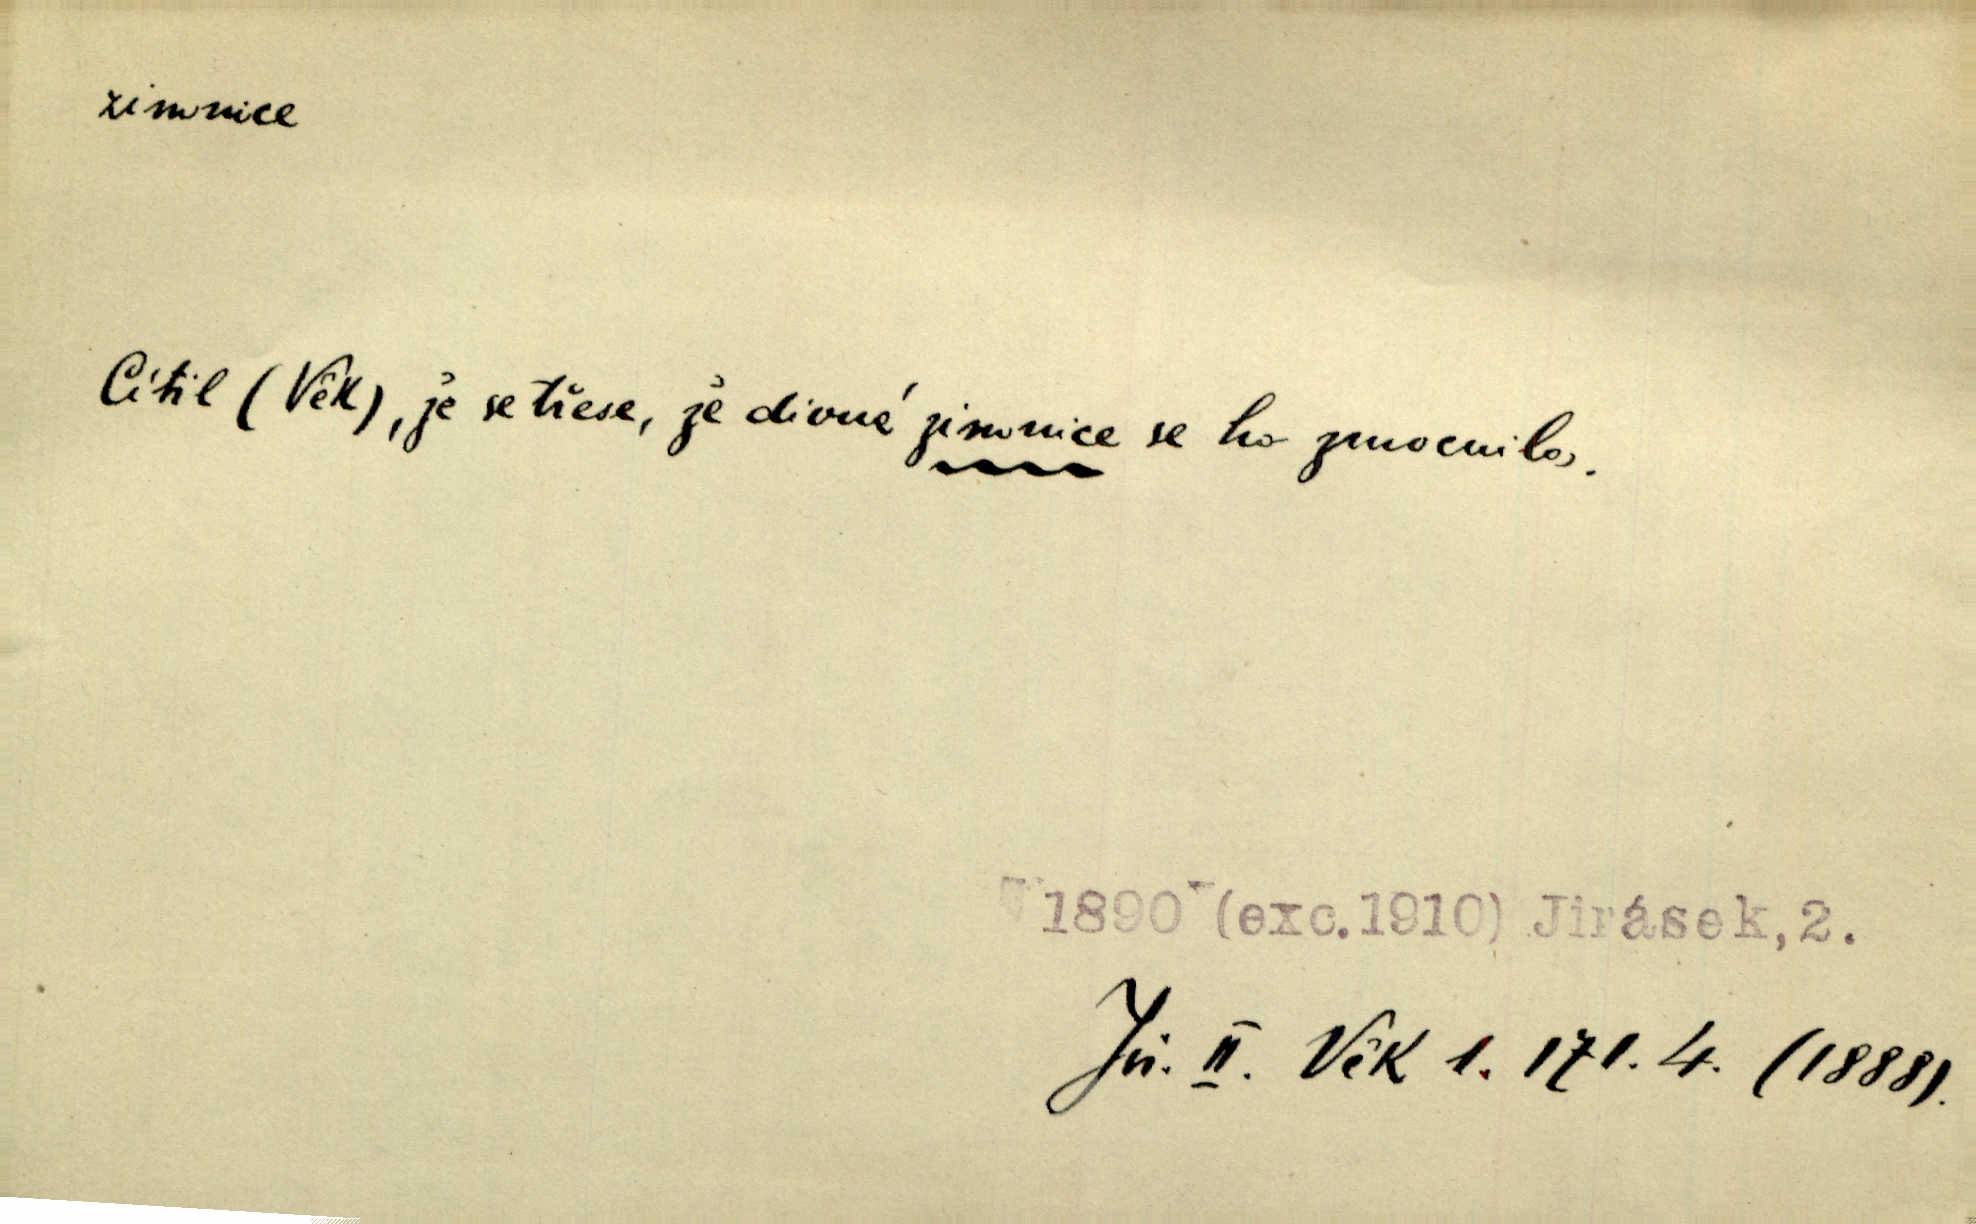 zimnice
Cítil (Věk), že se třese, že divná zimnice se ho zmocnila.
1890 (exc.1910) Jirásek,2.
Jir. II. Věk 1. 171. 4. (1888).